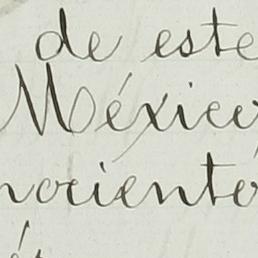 de este
México
nocientó